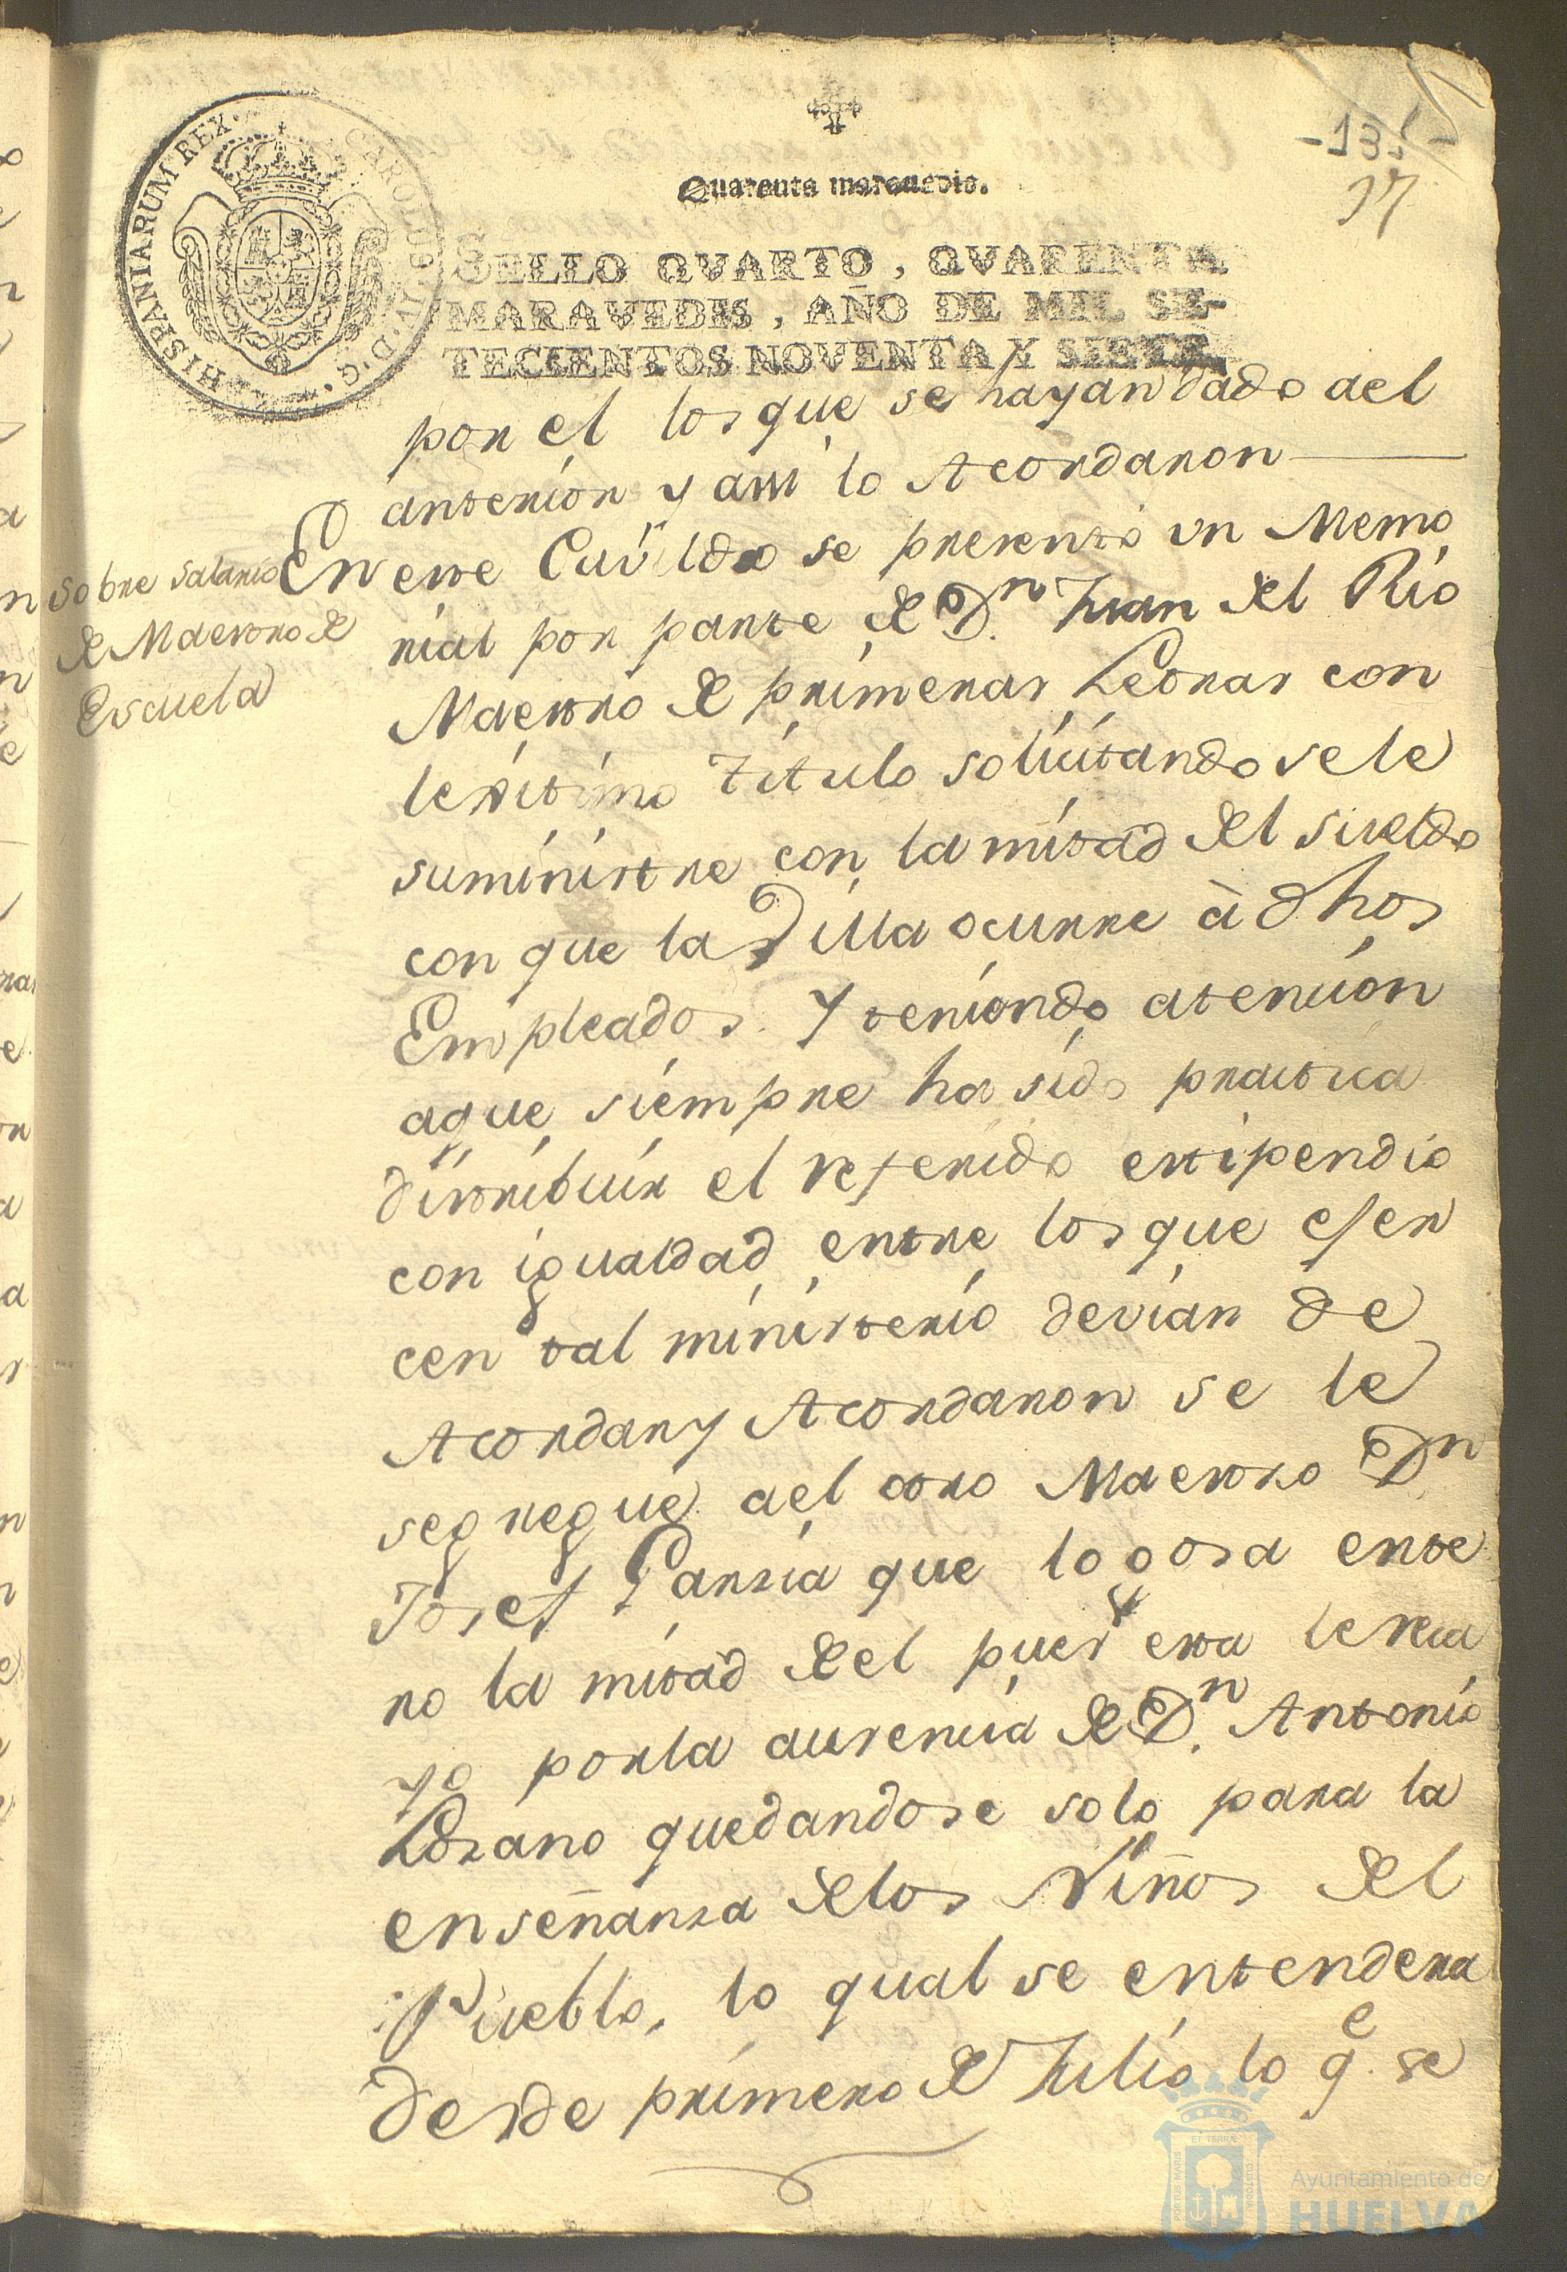 -131-
17
Quarenta marauedis.
HISPANIARUM REX. CAROLUS. IV. D. G.
SELLO QVARTO, QVARENTA
MARAVEDIS, AÑO DE MIL SE-
TECIENTOS NOVENTA Y SIETE.
por el los que se hayan dado ael
anterior y assi lo Acordaron
sobre salario
de Maestro de
Escuela
En este Cavildo se presentó un Memo
rial por parte de Dn. Juan del Rio
Maestro de primeras Letras con
lexitimo titulo solicitando se le
suministre con la mitad del sueldo
con que la Villa ocurre à dhos
Empleados. Y teniendo atencion
aque siempre ha sido practica
distribuir el referido estipendio
con igualdad entre los que ejer
cen tal ministerio devian de
Acordar y Acordaron se le
segregue ael otro Maestro Dn
Josef Garsia que lo gosa ente
ro la mitad de el pues esta le reca
yo por la ausencia de Dn. Antonio
Losano quedandose solo para la
enseñansa de los Niños del
Pueblo, lo qual se entendera
desde primero de Julio lo qe. se
ET TERRÆ
PORTUS MARIS
CUSTODIA
Ayuntamiento de
HUELVA